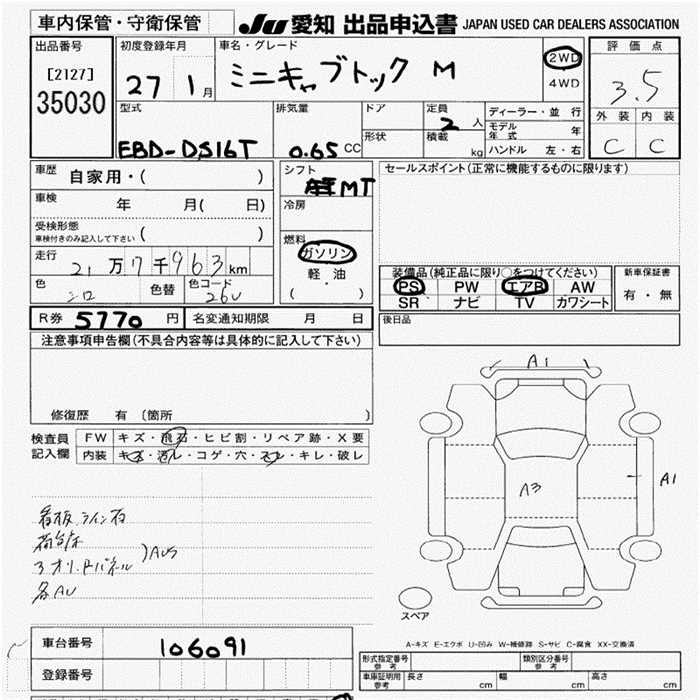 車内保管・守衛保管
JU 愛知 出品申込書 JAPAN USED CAR DEALERS ASSOCIATION
出品番号
[2127]
35030
初度登録年月
27 1月
車名・グレード
ミニキャブトラック M
2WD
4WD
評価点
3.5
外装 内装
C C
型式
EBD-DS16T
排気量
0.65 CC
ドア
形状
定員
2 人
積載
kg
ディーラー・並行
モデル年式 年
ハンドル 左・右
車歴
自家用・( )
車検
年 月( 日)
受検形態
車検付きのみ記入して下さい ( )
走行
21万7千963km
色
シロ
色替
色コード
26U
シフト
MT
冷房
燃料
ガソリン
軽油
( ・ )
セールスポイント(正常に機能するものに限ります)
装備品(純正品に限り○をつけてください)
PS PW エアB AW
SR ナビ TV カワシート
新車保証書
有・無
R券 5770 円
名変通知期限 月 日
後日品
注意事項申告欄(不具合内容等は具体的に記入して下さい)
修復歴 有 (箇所 )
検査員記入欄
FW キズ・飛石・ヒビ割・リペア跡・X要
内装 キズ・汚レ・コゲ・穴・スレ・キレ・破レ
看板
荷台
3オリ、ドパネル
各AU
A1
A1
A3
スペア
A-キズ E-エクボ U-凹み W-補修跡 S-サビ C-腐食 XX-交換済
車台番号
106091
登録番号
形式指定番号 参考
類別区分番号 参考
車庫証明用 参考
長さ cm 幅 cm 高さ cm